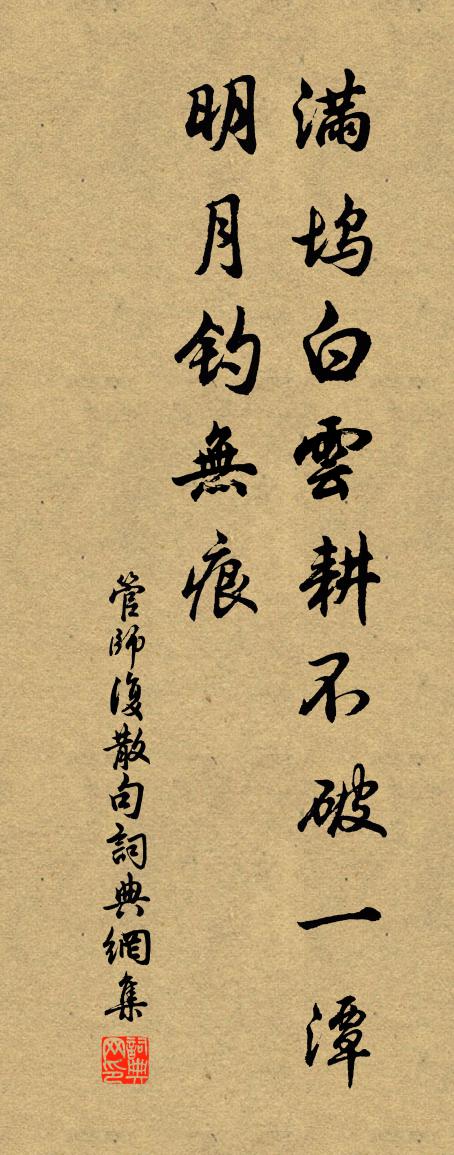 滿塢白雲耕不破一潭
明月釣無痕
管師復散句詞典網集
詞典網印